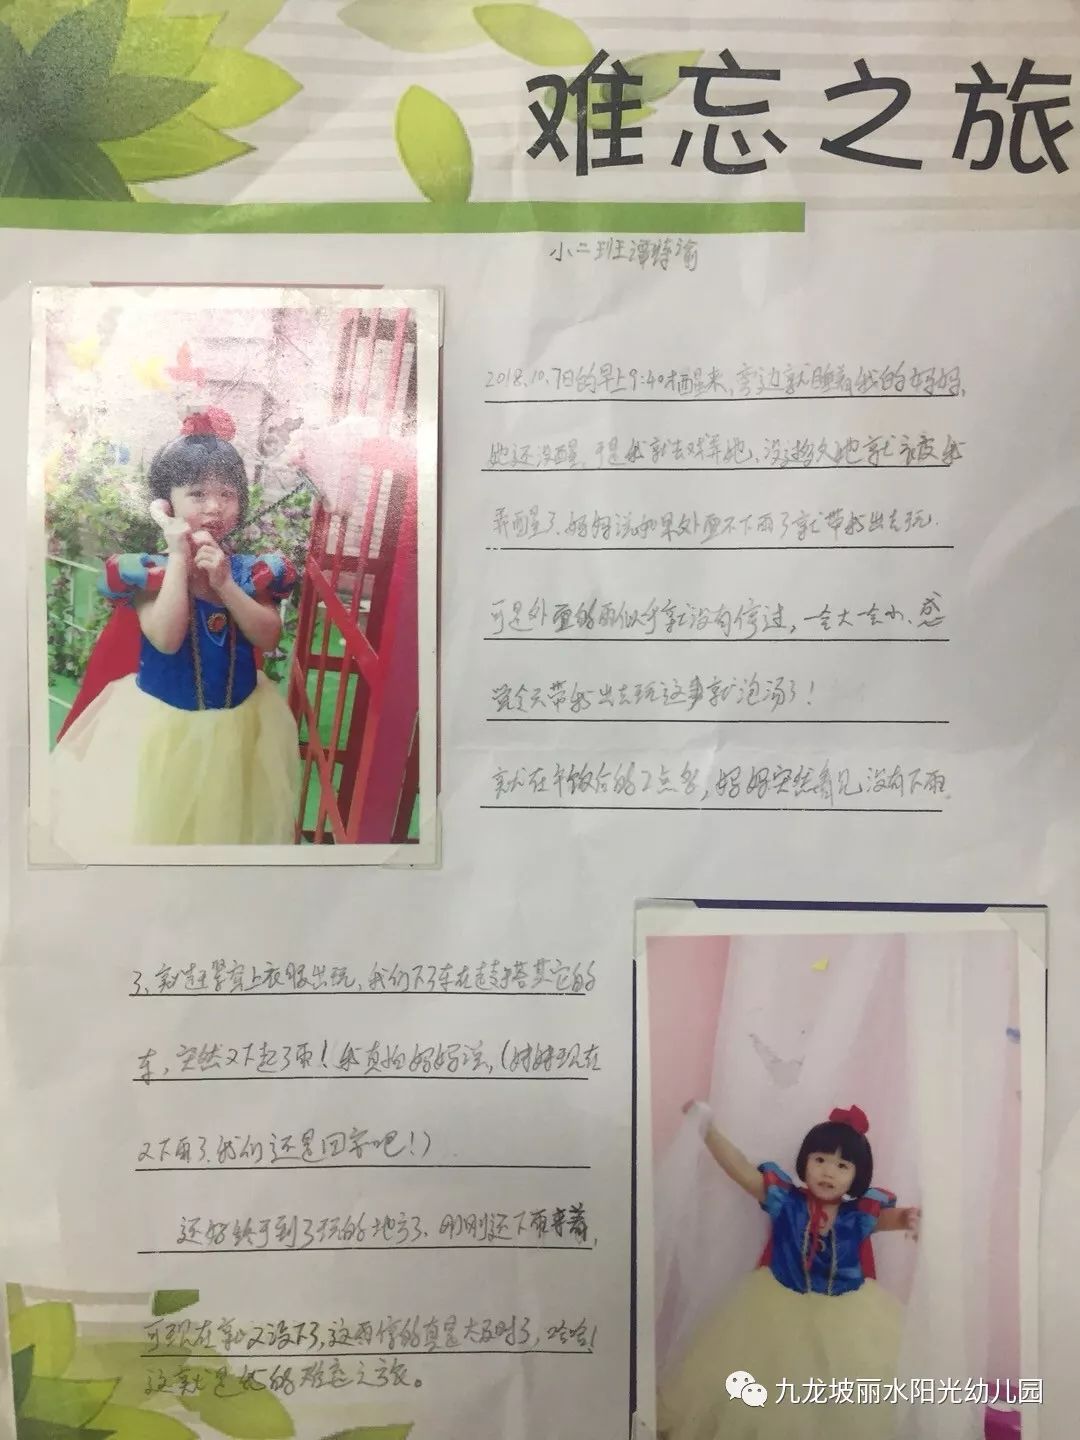 难忘之旅
小二班谭诗渝
2018.10.7日的早上9:40才醒来,旁边就睡着我的妈妈,
她还没醒,于是我就去戏弄她,没过多久她就被我
弄醒了,妈妈说如果外面不下雨了就带我出去玩.
可是外面的雨似乎就没有停过,一会大一会小,感
觉今天带我出去玩这事就泡汤了!
就在午饭后的2点多,妈妈突然看见没有下雨
了,就赶紧穿上衣服出玩,我们下了车在鼓捣其它的
车,突然又下起了雨!我真怕妈妈说,(妹妹现在
又下雨了,我们还是回家吧!)
还好终于到了玩的地方了,刚刚还下雨来着,
可现在就又没下了,这雨停的真是太及时了,哈哈!
这就是我的难忘之旅。
九龙坡丽水阳光幼儿园